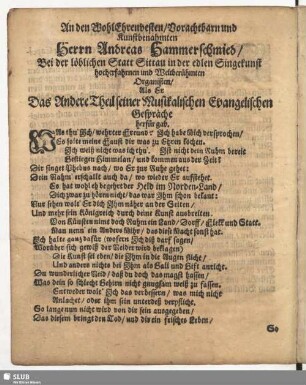 An den WohlEhrenvesten/Vorachtbarn und
Kunstbenahmten
Herrn Andreas Hammerschmied/
Bei der löblichen Statt Sittau in der edlen Singekunst
hocherfahrnen und Weltberühmten
Organisten/
Als Er
Das Andere Theil seiner Musikalischen Evangelischen
Gespräche
herfür gab.
Was thu' Ich/ wehrter Freund? Ich habe Dich versprochen/
So solte meine Faust dir was zu Ehren kochen.
Ich weiß nicht was ich thu'. Ist nicht dein Ruhm bereit
Gestiegen Himmelan/ und kommen aus der Zeit?
Die singet Phebus nach/ wo Er zur Ruhe gehet:
Dein Ruhm erschallt auch da/ wo wieder Er aufstehet.
So hat wohl eh begehret der Held im Norden-Land/
Dich zwar zu hören nicht/ das war Ihm schon bekant:
Nur sehen wolt' Er dich Ihm näher an der Seiten/
Und mehr sein Königreich durch deine Kunst ausbreiten.
Von Künsten nimt doch Ruhm ein Land/Dorff/Fleck und Statt.
Man nenn' ein Anders Mihr/ das diese Macht sonst hat.
Ich halte ganz dafür (wofern Ich diß darf sagen/
Worüber sich gewiß der Neider wird beklagen)
Die Kunst sei eben/ die Ihm in die Augen sticht/
Und anders nichts bei Ihm als Gall und Gift anricht.
Du wunderlicher Neid/ daß du doch das magst hassen/
Was dein so schlecht Gehirn nicht gnugsam weiß zu fassen.
Entweder wolt' Ich das verbessern/ was mich nicht
Anlachet/ oder ihm sein unterdeß verpflicht.
So lange nun nicht wird von dir sein ausgegeben/
Das diesem bringt den Tod/ und dir ein frisches Leben/
So